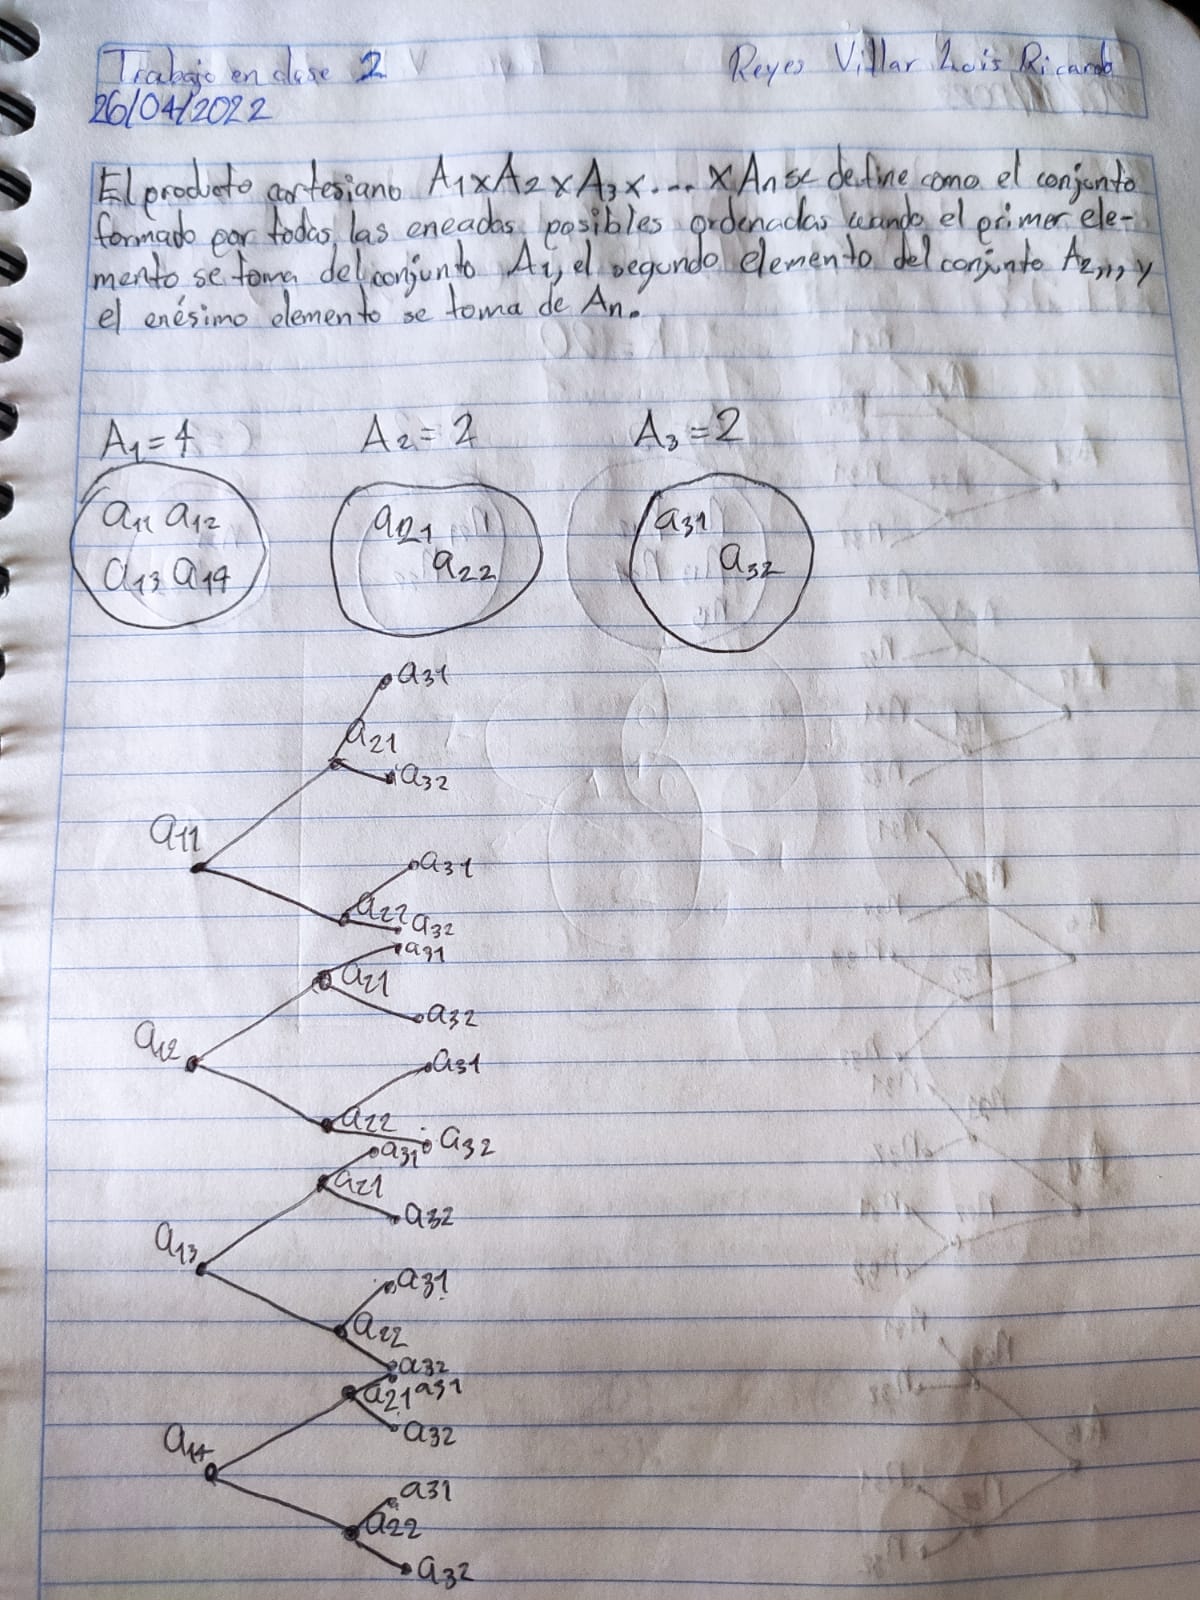 Trabajo en clase 2
Reyes Villar Luis Ricardo
26/04/2022
El producto cartesiano A1xA2xA3x.... xAn se define como el conjunto
formado por todas las eneadas posibles ordenadas cuando el primer ele-
mento se toma del conjunto A1, el segundo elemento del conjunto A2,,, y
el enésimo elemento se toma de An.
A1=4 A2=2 A3=2
a11 a12
a13 a14
a21
a22
a31
a32
a31
a21
a32
a11
a31
a22
a32
a31
a21
a32
a12
a31
a22
a32
a31
a21
a32
a13
a31
a22
a32
a31
a21
a32
a14
a31
a22
a32